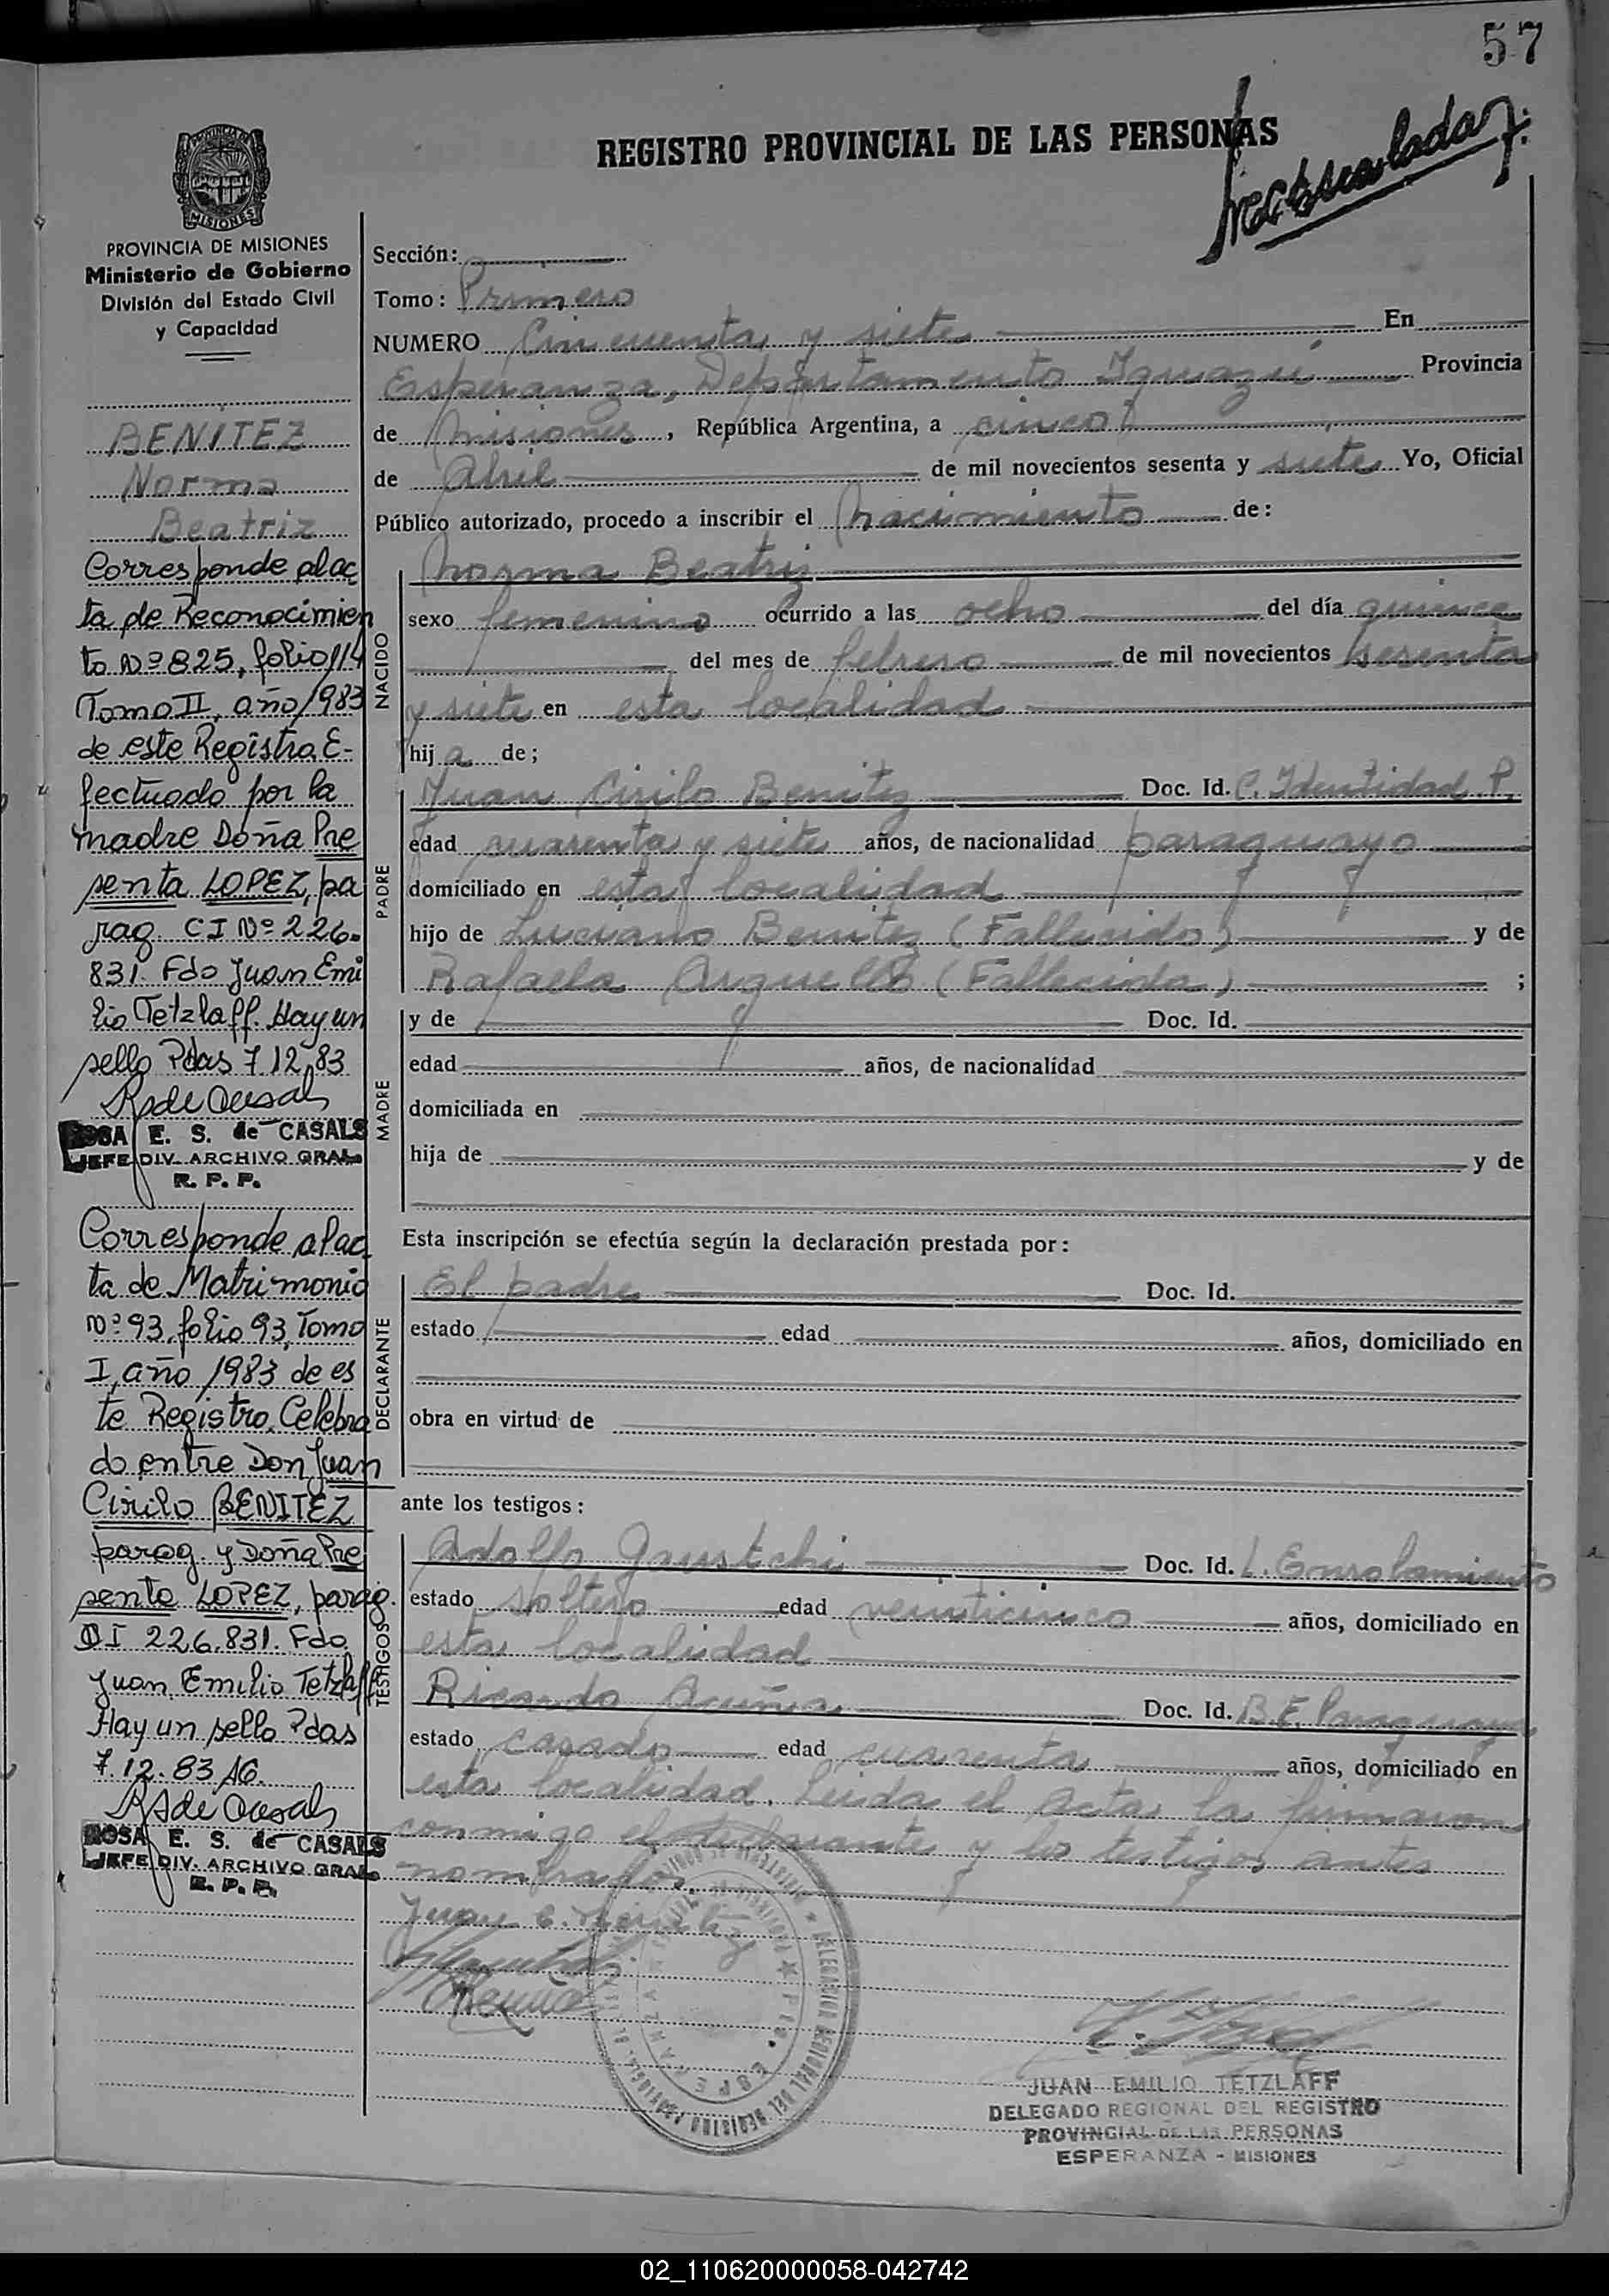 57
REGISTRO PROVINCIAL DE LAS PERSONAS
PROVINCIA DE
MISIONES
PROVINCIA DE MISIONES
Ministerio de Gobierno
División del Estado Civil
y Capacidad
BENITEZ
Norma
Beatriz
Corresponde al ac
ta de Reconocimien
to Nº 825, folio 114
Tomo II, año 1983
de este Registro E-
fectuado por la
madre Doña Pre
senta LOPEZ, pa
rag. CI Nº 226.
831. Fdo Juan Emi
lio Tetzlaff. Hay un
sello Pdas 7.12.83
ROSA E. S. de CASALS
JEFE DIV. ARCHIVO GRAL.
R. P. P.
Corresponde al ac
ta de Matrimonio
Nº 93, folio 93, Tomo
I, año 1983 de es
te Registro. Celebra
do entre Don Juan
Cirilo BENITEZ
parag. y Doña Pre
senta LOPEZ, parag.
CI 226.831. Fdo
Juan Emilio Tetzlaff
Hay un sello Pdas
7.12.83
ROSA E. S. de CASALS
JEFE DIV. ARCHIVO GRAL.
R. P. P.
Sección:
Tomo: Primero
NUMERO Cincuenta y siete En
Esperanza, Departamento Iguazú Provincia
de Misiones, República Argentina, a cinco
de Abril de mil novecientos sesenta y siete Yo, Oficial
Público autorizado, procedo a inscribir el nacimiento de:
NACIDO
Norma Beatriz
sexo femenino ocurrido a las ocho del día quince
del mes de febrero de mil novecientos sesenta
y siete en esta localidad
hija de;
PADRE
Juan Cirilo Benitez Doc. Id. C. Identidad P.
edad cuarenta y siete años, de nacionalidad paraguayo
domiciliado en esta localidad
hijo de Luciano Benitez (Fallecido) y de
Rafaela Arguello (Fallecida) ;
MADRE
y de Doc. Id.
edad años, de nacionalidad
domiciliada en
hija de y de
Esta inscripción se efectúa según la declaración prestada por:
DECLARANTE
El padre Doc. Id.
estado edad años, domiciliado en
obra en virtud de
ante los testigos:
TESTIGOS
Adolfo Doc. Id. L. Enrolamiento
estado soltero edad veinticinco años, domiciliado en
esta localidad
Ricardo Acuña Doc. Id. B.E. Paraguaya
estado casado edad cuarenta años, domiciliado en
esta localidad. Leida el acta la firmaron
conmigo el declarante y los testigos antes
nombrados.
Juan C. Benitez
JUAN EMILIO TETZLAFF
DELEGADO REGIONAL DEL REGISTRO
PROVINCIAL DE LAS PERSONAS
ESPERANZA - MISIONES
02_110620000058-042742